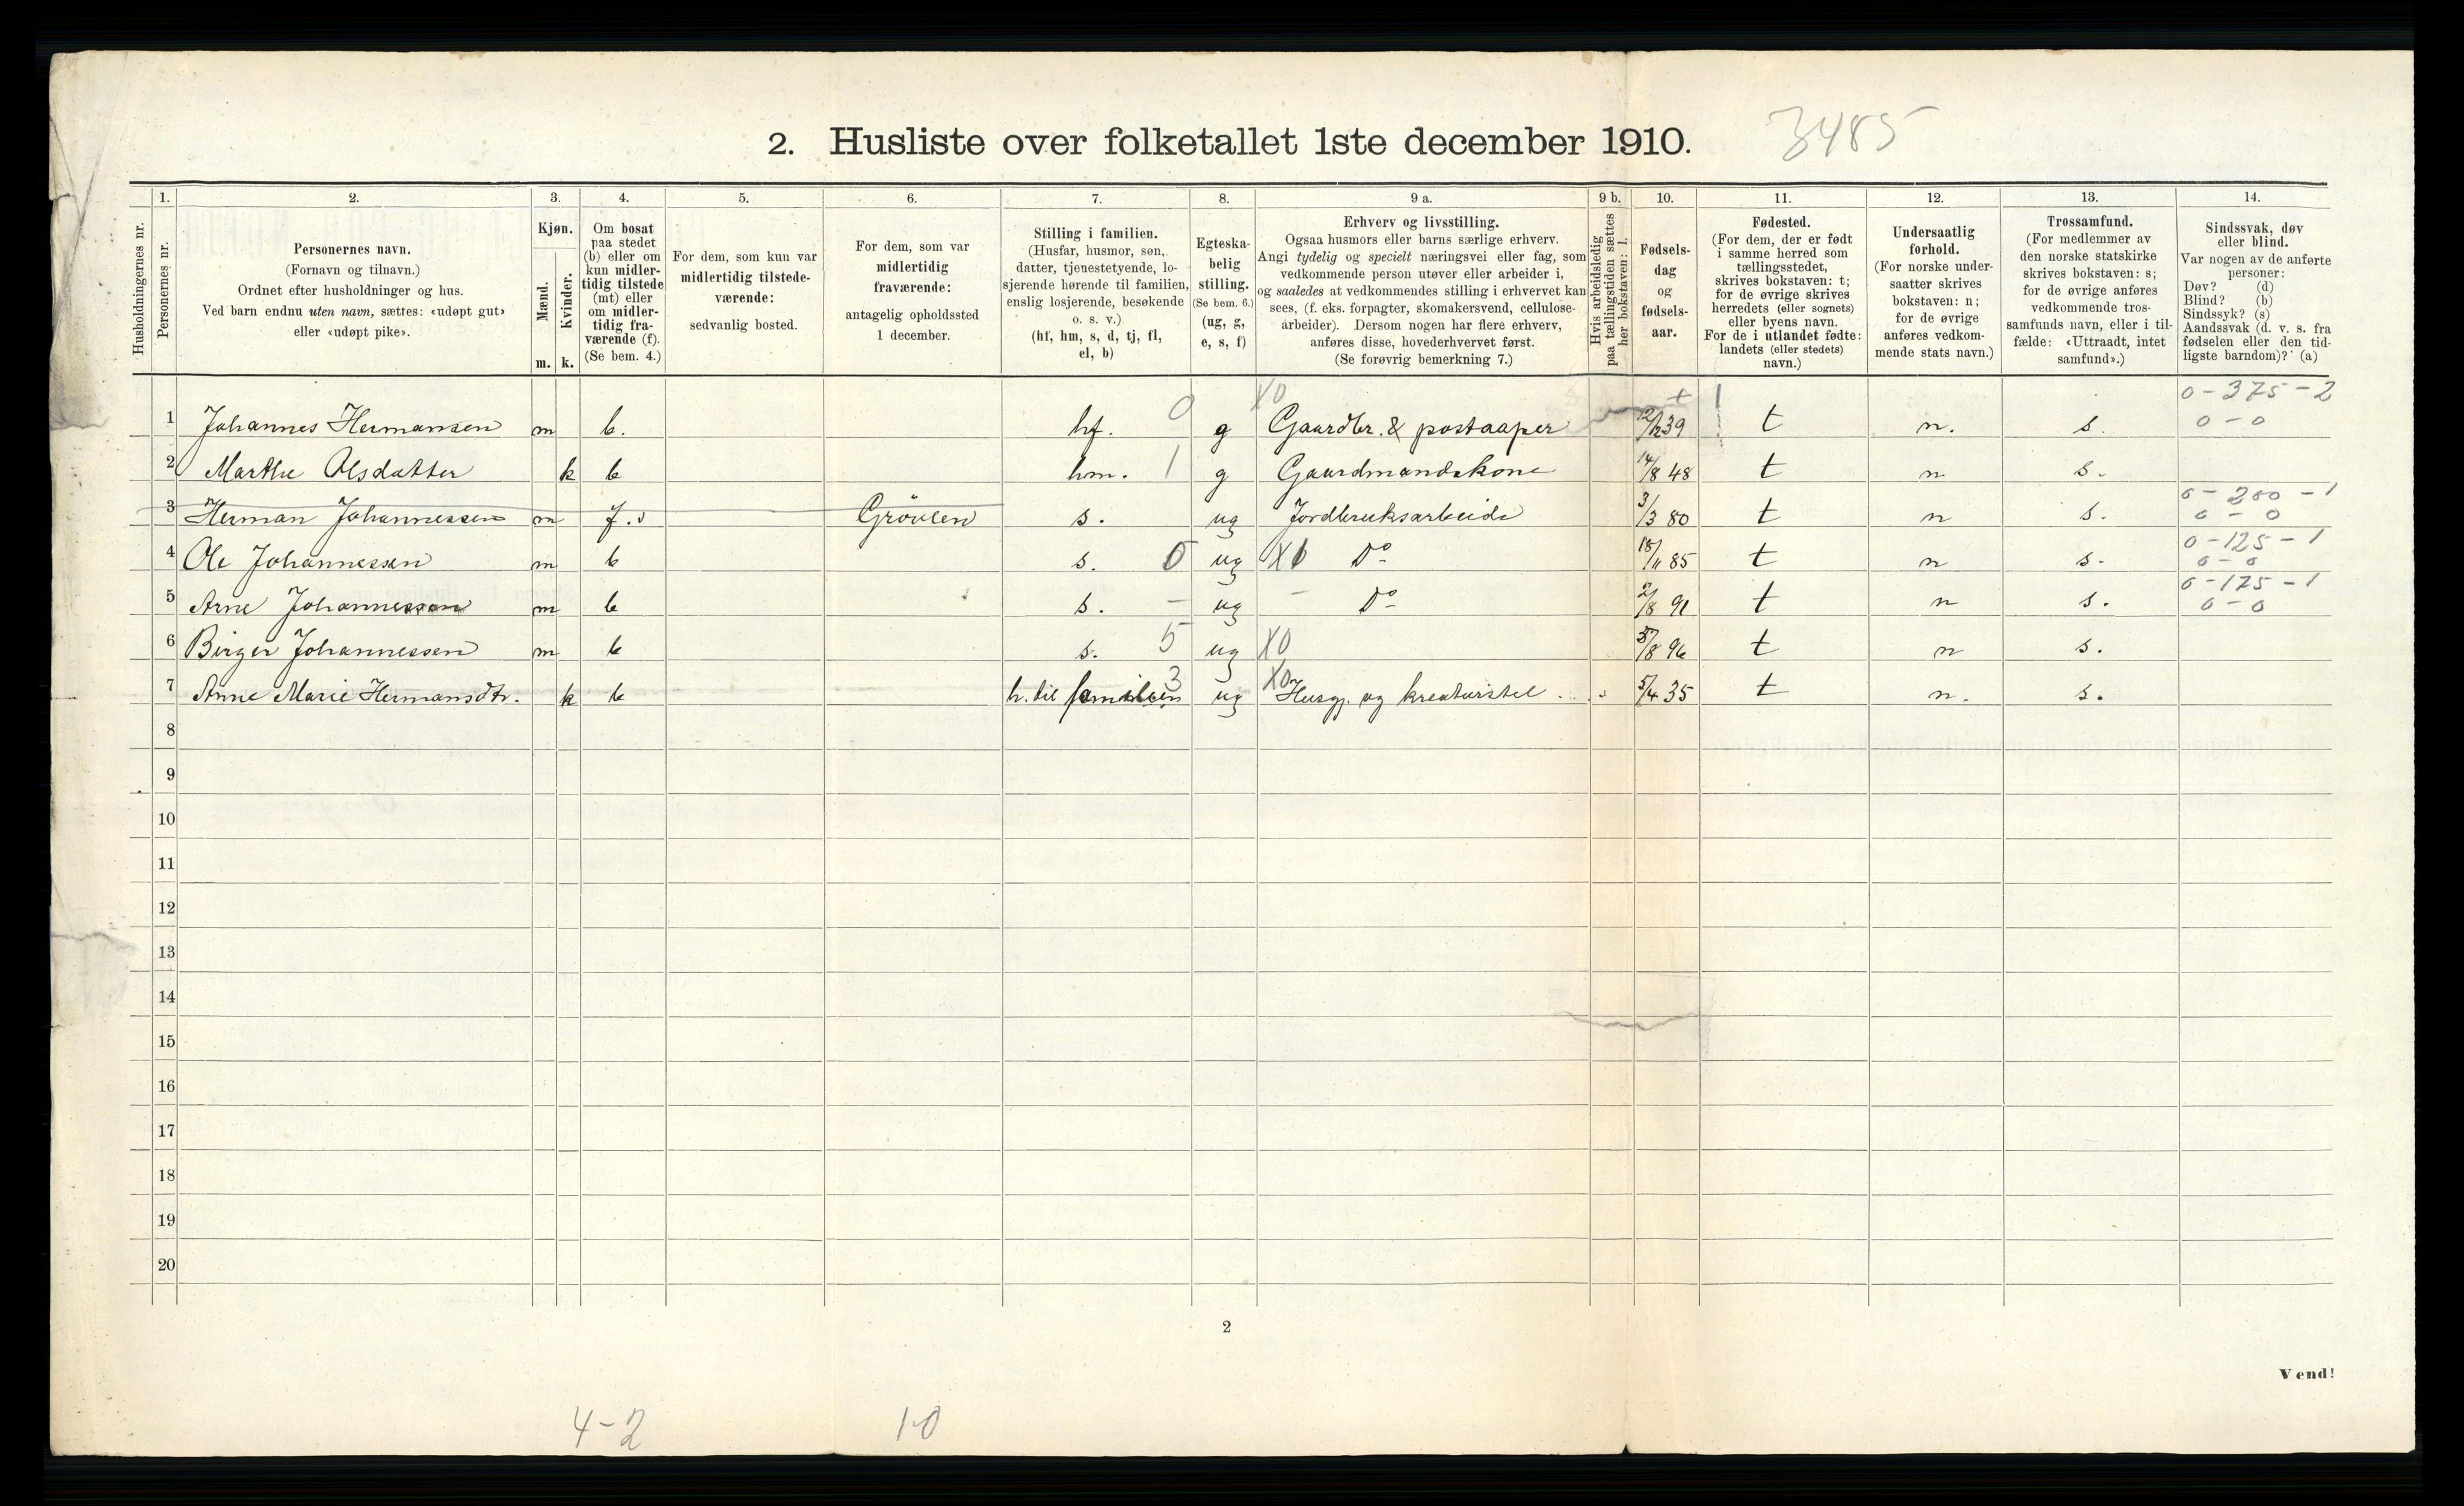 2. Husliste over folketallet 1ste december 1910. 3485
Husholdningernes nr.
1. Personernes nr.
2. Personernes navn. (Fornavn og tilnavn.) Ordnet efter husholdninger og hus. Ved barn endnu uten navn, sættes: «udøpt gut» eller «udøpt pike».
3. Kjøn. Mænd. m. Kvinder. k.
4. Om bosat paa stedet (b) eller om kun midlertidig tilstede (mt) eller om midlertidig fraværende (f). (Se bem. 4.)
5. For dem, som kun var midlertidig tilstedeværende: sedvanlig bosted.
6. For dem, som var midlertidig fraværende: antagelig opholdssted 1 december.
7. Stilling i familien. (Husfar, husmor, søn, datter, tjenestetyende, losjerende hørende til familien, enslig losjerende, besøkende o. s. v.) (hf, hm, s, d, tj, fl, el, b)
8. Egteskabelig stilling. (Se bem. 6.) (ug, g, e, s, f)
9 a. Erhverv og livsstilling. Ogsaa husmors eller barns særlige erhverv. Angi tydelig og specielt næringsvei eller fag, som vedkommende person utøver eller arbeider i, og saaledes at vedkommendes stilling i erhvervet kan sees, (f. eks. forpagter, skomakersvend, cellulosearbeider). Dersom nogen har flere erhverv, anføres disse, hovederhvervet først. (Se forøvrig bemerkning 7.)
9 b. Hvis arbeidsledig paa tællingstiden sættes her bokstaven: l.
10. Fødselsdag og fødselsaar.
11. Fødested. (For dem, der er født i samme herred som tællingsstedet, skrives bokstaven: t; for de øvrige skrives herredets (eller sognets) eller byens navn. For de i utlandet fødte: landets (eller stedets) navn.)
12. Undersaatlig forhold. (For norske undersaatter skrives bokstaven: n; for de øvrige anføres vedkommende stats navn.)
13. Trossamfund. (For medlemmer av den norske statskirke skrives bokstaven: s; for de øvrige anføres vedkommende trossamfunds navn, eller i tilfælde: «Uttraadt, intet samfund».)
14. Sindssvak, døv eller blind. Var nogen av de anførte personer: Døv? (d) Blind? (b) Sindssyk? (s) Aandssvak (d. v. s. fra fødselen eller den tidligste barndom)? (a)
X0 + 0-375-2
1 Johannes Hermansen m b. hf. 0 g Gaardbr. & postaaper 12/12 39 t n. s. 0-0
2 Marthe Olsdatter k b hm. 1 g Gaardmandskone 14/8 48 t n s.
0-200-1
3 Herman Johannessen m f. Gröusen s. ug Jordbruksarbeide 3/3 80 t n s. 0-0
0-125-1
4 Ole Johannessen m b s. 0 ug X1 Do 18/11 85 t n s. 0-0
0-175-1
5 Arne Johannessen m b s. - ug - Do 2/8 91 t n s. 0-0
6 Birger Johannessen m b s. 5 ug X0 /8 96 t n s.
7 Anne Marie Hermansdtr. k b h. til familien 3 ug X0 Husgj. og kreaturstel 5/4 35 t n. s.
8
9
10
11
12
13
14
15
16
17
18
19
20
2
Vend!
4-2 1-0